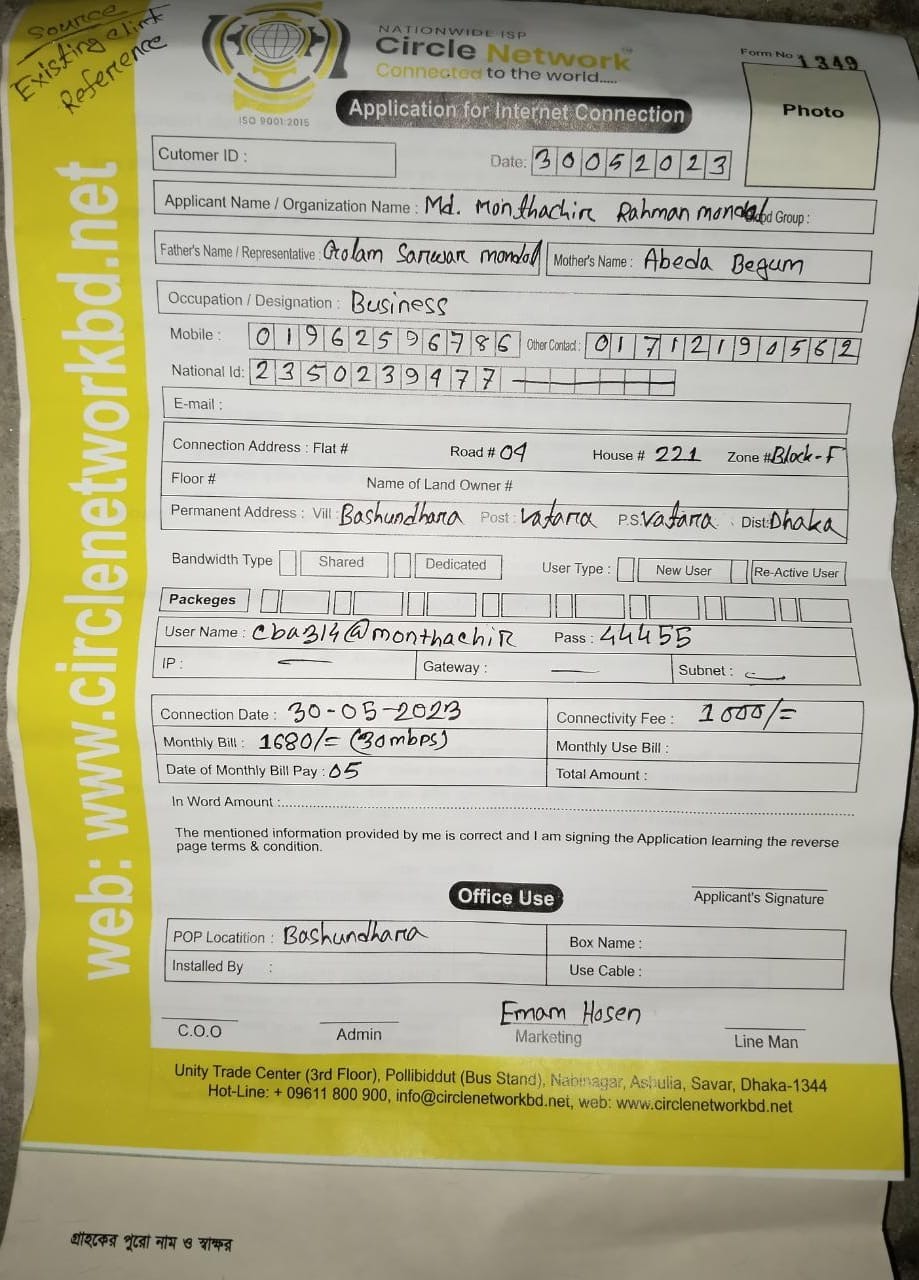 Source
Existing clint
Reference
NATIONWIDE ISP
Circle Network™
Connected to the world.....
ISO 9001:2015
Form No 1349
Application for Internet Connection
Photo
Cutomer ID :
Date: 30052023
Applicant Name / Organization Name : Md. Monthachir Rahman mondal Group :
Father's Name / Representative : Golam Sarwar mondal Mother's Name : Abeda Begum
Occupation / Designation : Business
Mobile : 01962596786 Other Contact : 01712190562
National Id: 2350239477
E-mail :
Connection Address : Flat # Road # 04 House # 221 Zone # Block-F
Floor # Name of Land Owner #
Permanent Address : Vill : Bashundhara Post : Vatara P.S. Vatara Dist: Dhaka
Bandwidth Type Shared Dedicated User Type : New User Re-Active User
Packeges
User Name : cba314@monthachir Pass : 44455
IP : — Gateway : — Subnet : —
Connection Date : 30-05-2023 Connectivity Fee : 1000/=
Monthly Bill : 1680/= (30mbps) Monthly Use Bill :
Date of Monthly Bill Pay : 05 Total Amount :
In Word Amount :
The mentioned information provided by me is correct and I am signing the Application learning the reverse
page terms & condition.
Applicant's Signature
Office Use
POP Locatition : Bashundhara Box Name :
Installed By : Use Cable :
Emam Hosen
C.O.O Admin Marketing Line Man
Unity Trade Center (3rd Floor), Pollibiddut (Bus Stand), Nabinagar, Ashulia, Savar, Dhaka-1344
Hot-Line: + 09611 800 900, info@circlenetworkbd.net, web: www.circlenetworkbd.net
web: www.circlenetworkbd.net
গ্রাহকের পুরো নাম ও স্বাক্ষর